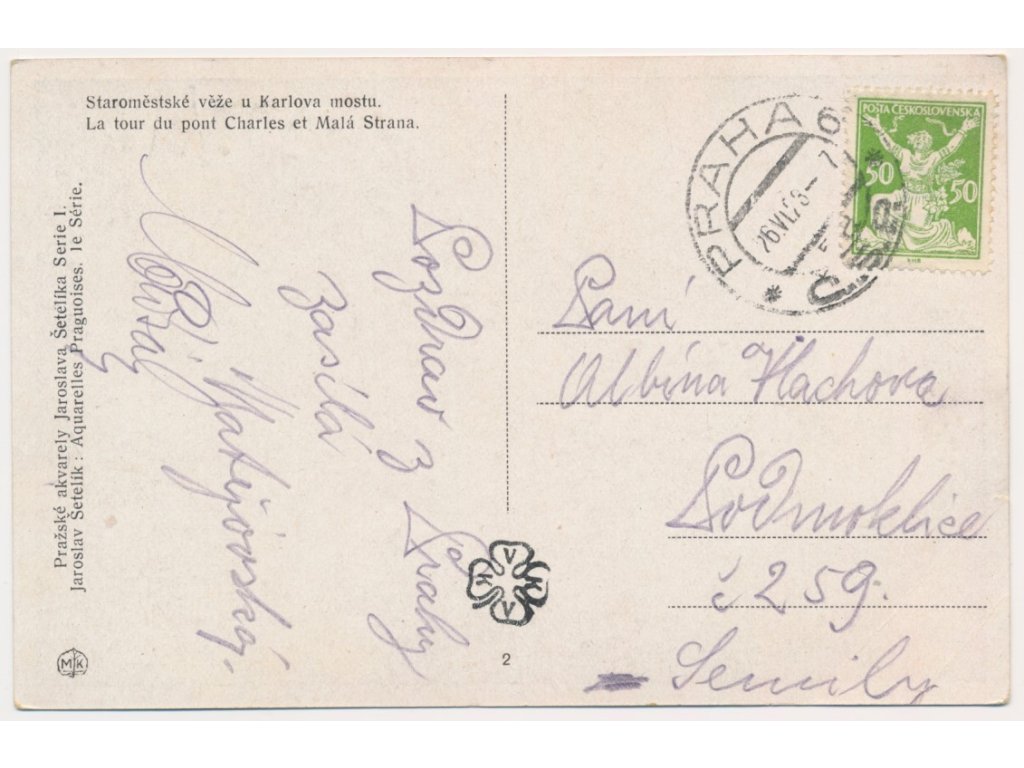 Staroměstské věže u Karlova mostu.
La tour du pont Charles et Malá Strana.
Pražské akvarely Jaroslava Šetelíka Serie I.
Jaroslav Šetelík : Aquarelles Praguoises. 1e Série.
Pozdrav z Prahy
zasílá
Matějovský.
PRAHA 6
26.VI.23
ČSR
POŠTA ČESKOSLOVENSKÁ
50
50
Paní
Albína Hlachova
Podmoklice
č 259.
Semily
V K V K
MK
2